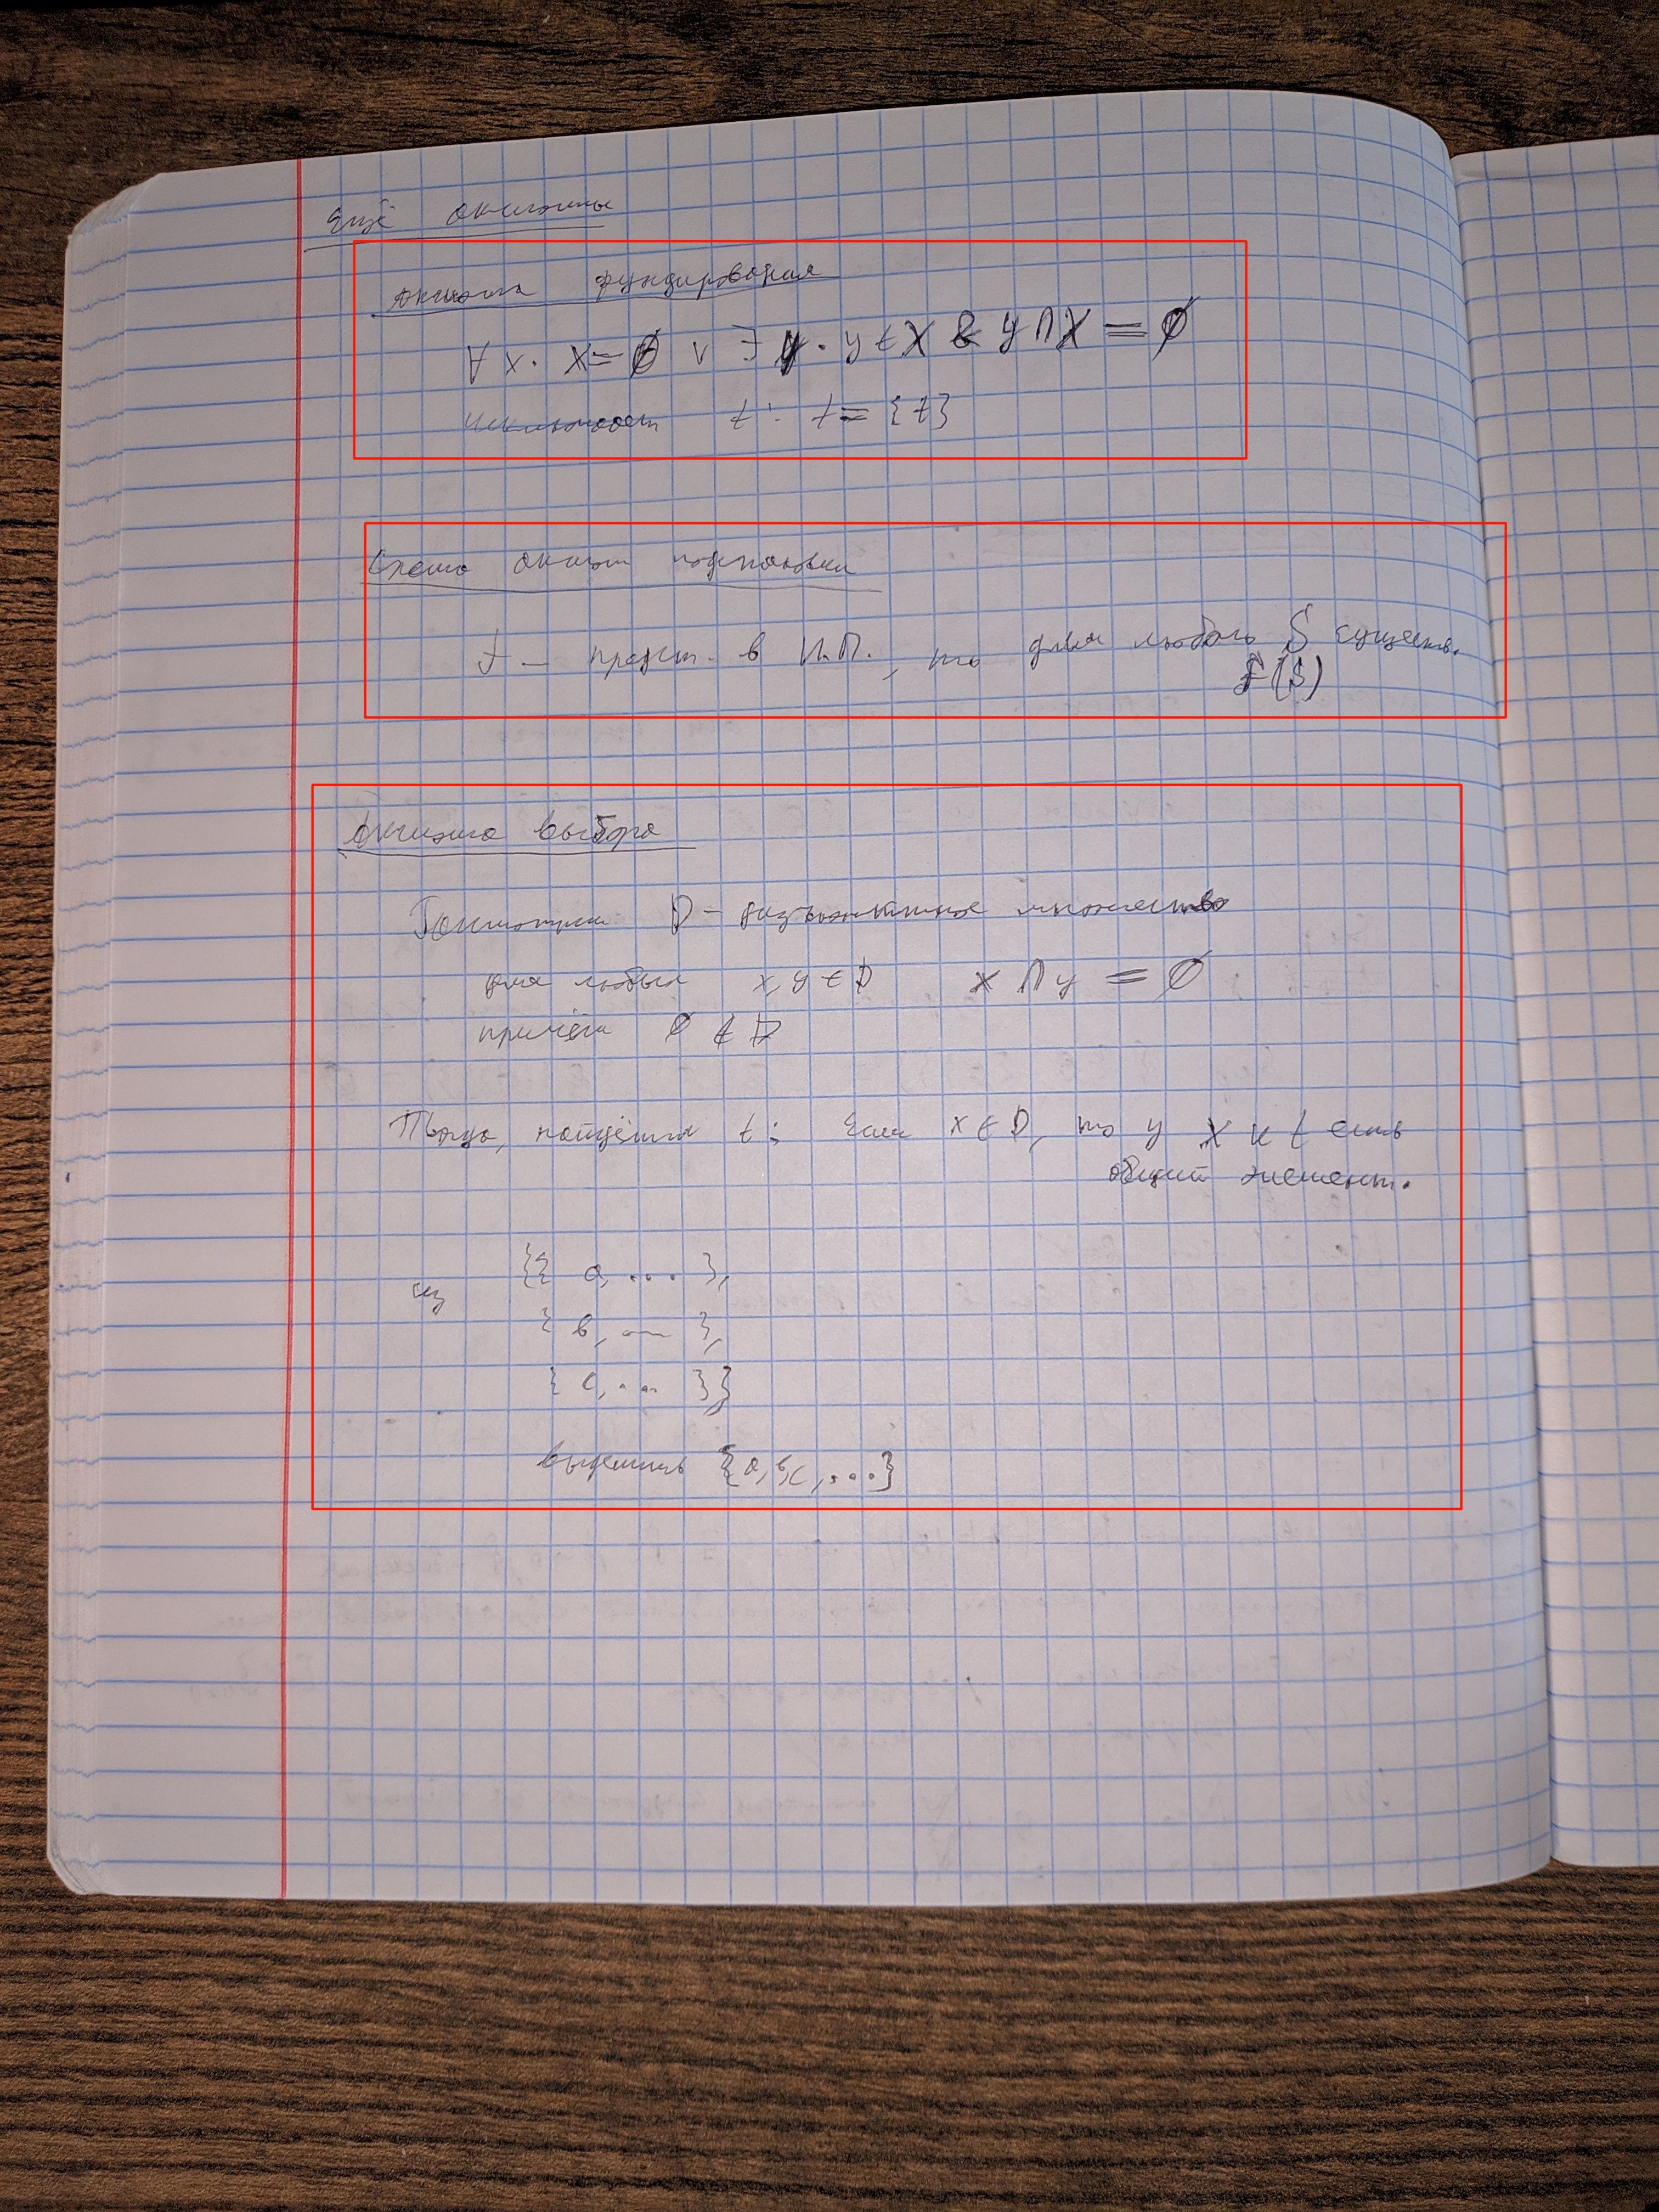 Ещё аксиомы
Аксиома фундирования
∀x. x=∅ ∨ ∃y. y∈X & y∩X = ∅
исключает t: t={t}
Схема аксиом подстановки
f – предст. в И.П., то для любого S существ.
f(S)
Аксиома выбора
D – дизъюнктное множество
для любых x, y ∈ D x ∩ y = ∅
причём ∅ ∉ D
Тогда, найдётся t: Если x ∈ D, то у x и t есть
общий элемент.
{{ a, ... },
из
{ b, ... },
{ c, ... }}
выделить {a, b, c, ...}